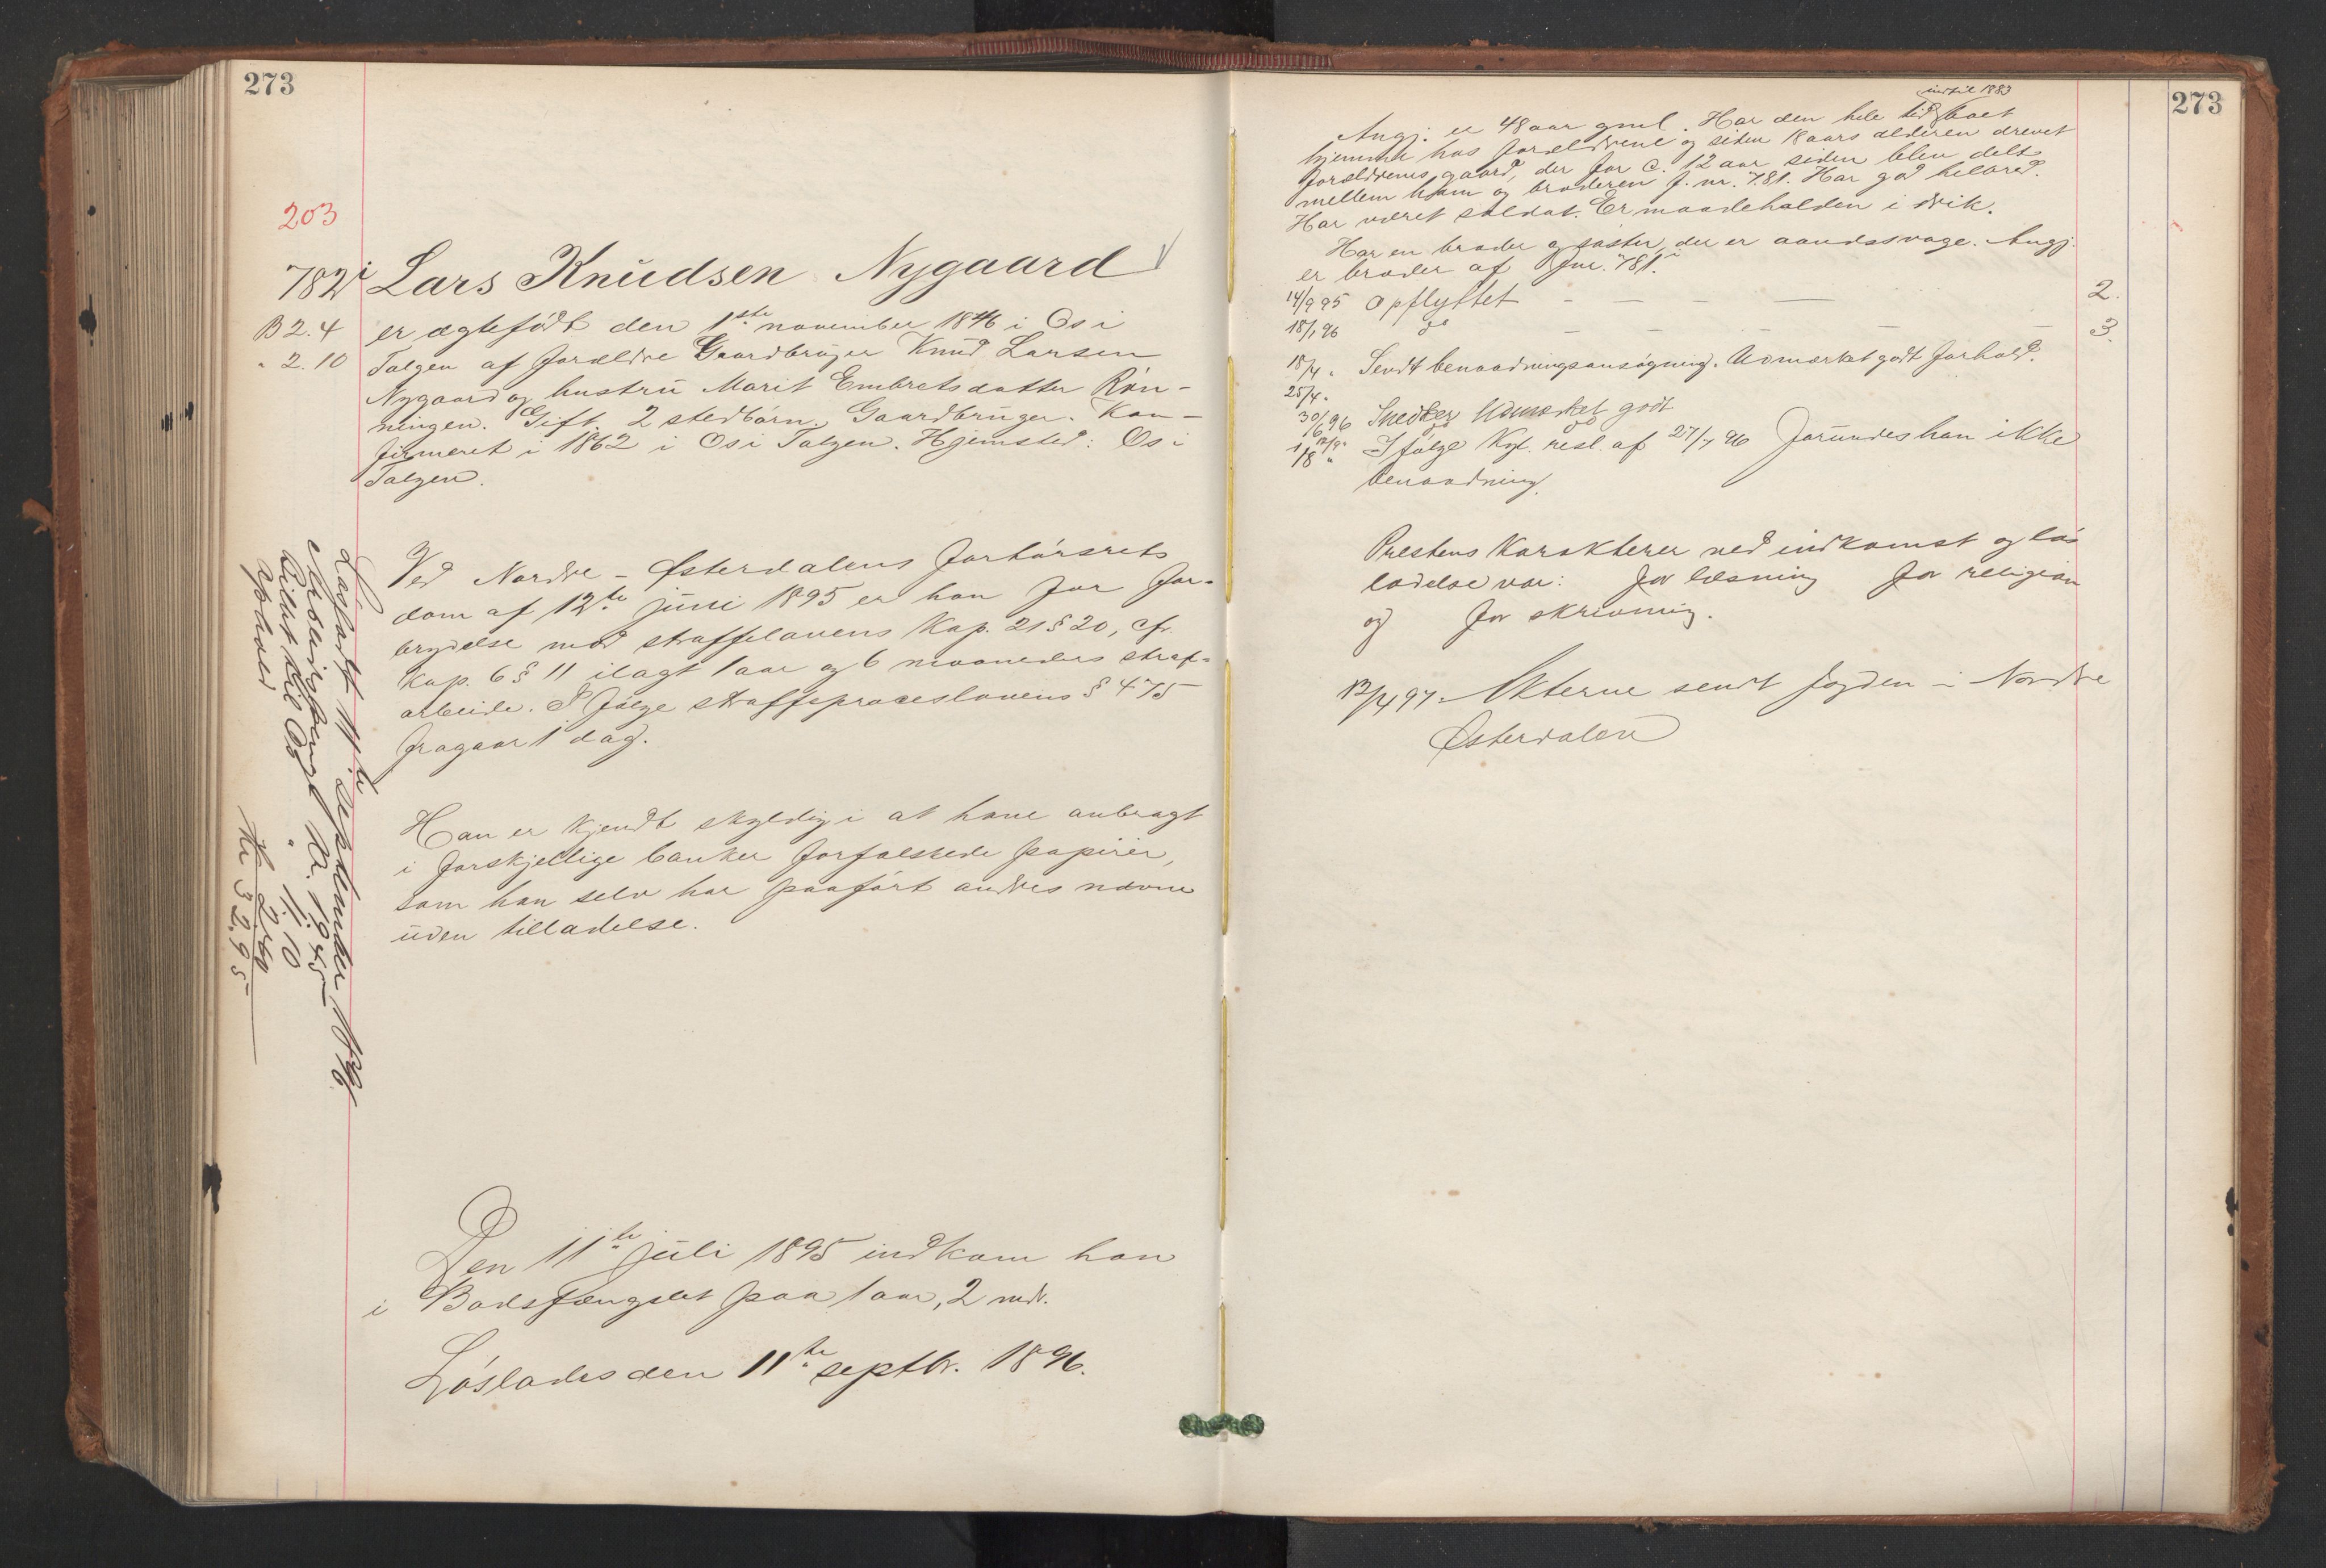 273
203
782i Lars Knudsen Nygaard
B 2.4 er ægtefødt den 1ste november 1846 i Os i
" 2.10 Tolgen af forældre Gaardbruger Knud Larsen
Nygaard og hustru Marit Embretsdatter Røn-
ningen. Gift. 2 stedbørn. Gaardbruger. Kon-
firmeret i 1862 i Os i Tolgen. Hjemsted: Os i
Tolgen.
Ved Nordre-Østerdalens forhørsrets
dom af 12te juni 1895 er han for for-
brydelse mod straffelovens Kap. 21 § 20, cfr.
Kap. 6 § 11 ilagt 1 aar og 6 maaneders straf-
arbeide. I følge straffeproceslovens § 475
fragaar 1 dag.
Han er kjendt skyldig i at have anbragt
i forskjellige banker forfalskede papirer,
som han selv har paaført andres navne
uden tilladelse.
Den 11te juli 1895 indkom han
i Bodsfængslet paa 1 aar, 2 mdr.
Løslades den 11te septbr. 1896.
Løsladt 11te september 1896
Arbeidspenge Kr. 19.45
Billet til Os " 11.10
Ophold Kr 2.40
Kr 32,95
273
indtil 1883
Angj. er 48 aar gml. Har den hele tid boet
hjemme hos forældrene og siden 18 aars alderen drevet
forældrenes gaard, der for c. 12 aar siden blev delt
mellem ham og broderen f. nr. 781. Har god helbred.
Har været soldat. Er maadeholden i drik.
Har en broder og søster, der er aandssvage. Angj.
er broder af f nr. 781.i
14/9 95 Opflyttet — — — — 2.
18/1 96 do — — — — — 3.
18/4 " Sendt benaadningsansøgning. Udmærket godt forhold.
25/4 "
30/6 96 Snedker Udmærket godt
do do
1/8 " I følge Kgl. resl. af 27/7 96 forundes han ikke
benaadning.
Prestens Karakterer ved indkomst og løs
ladelse var: for læsning for religion
og for skrivning.
12/4 97. Akterne sendt fogden i Nordre
Østerdalen